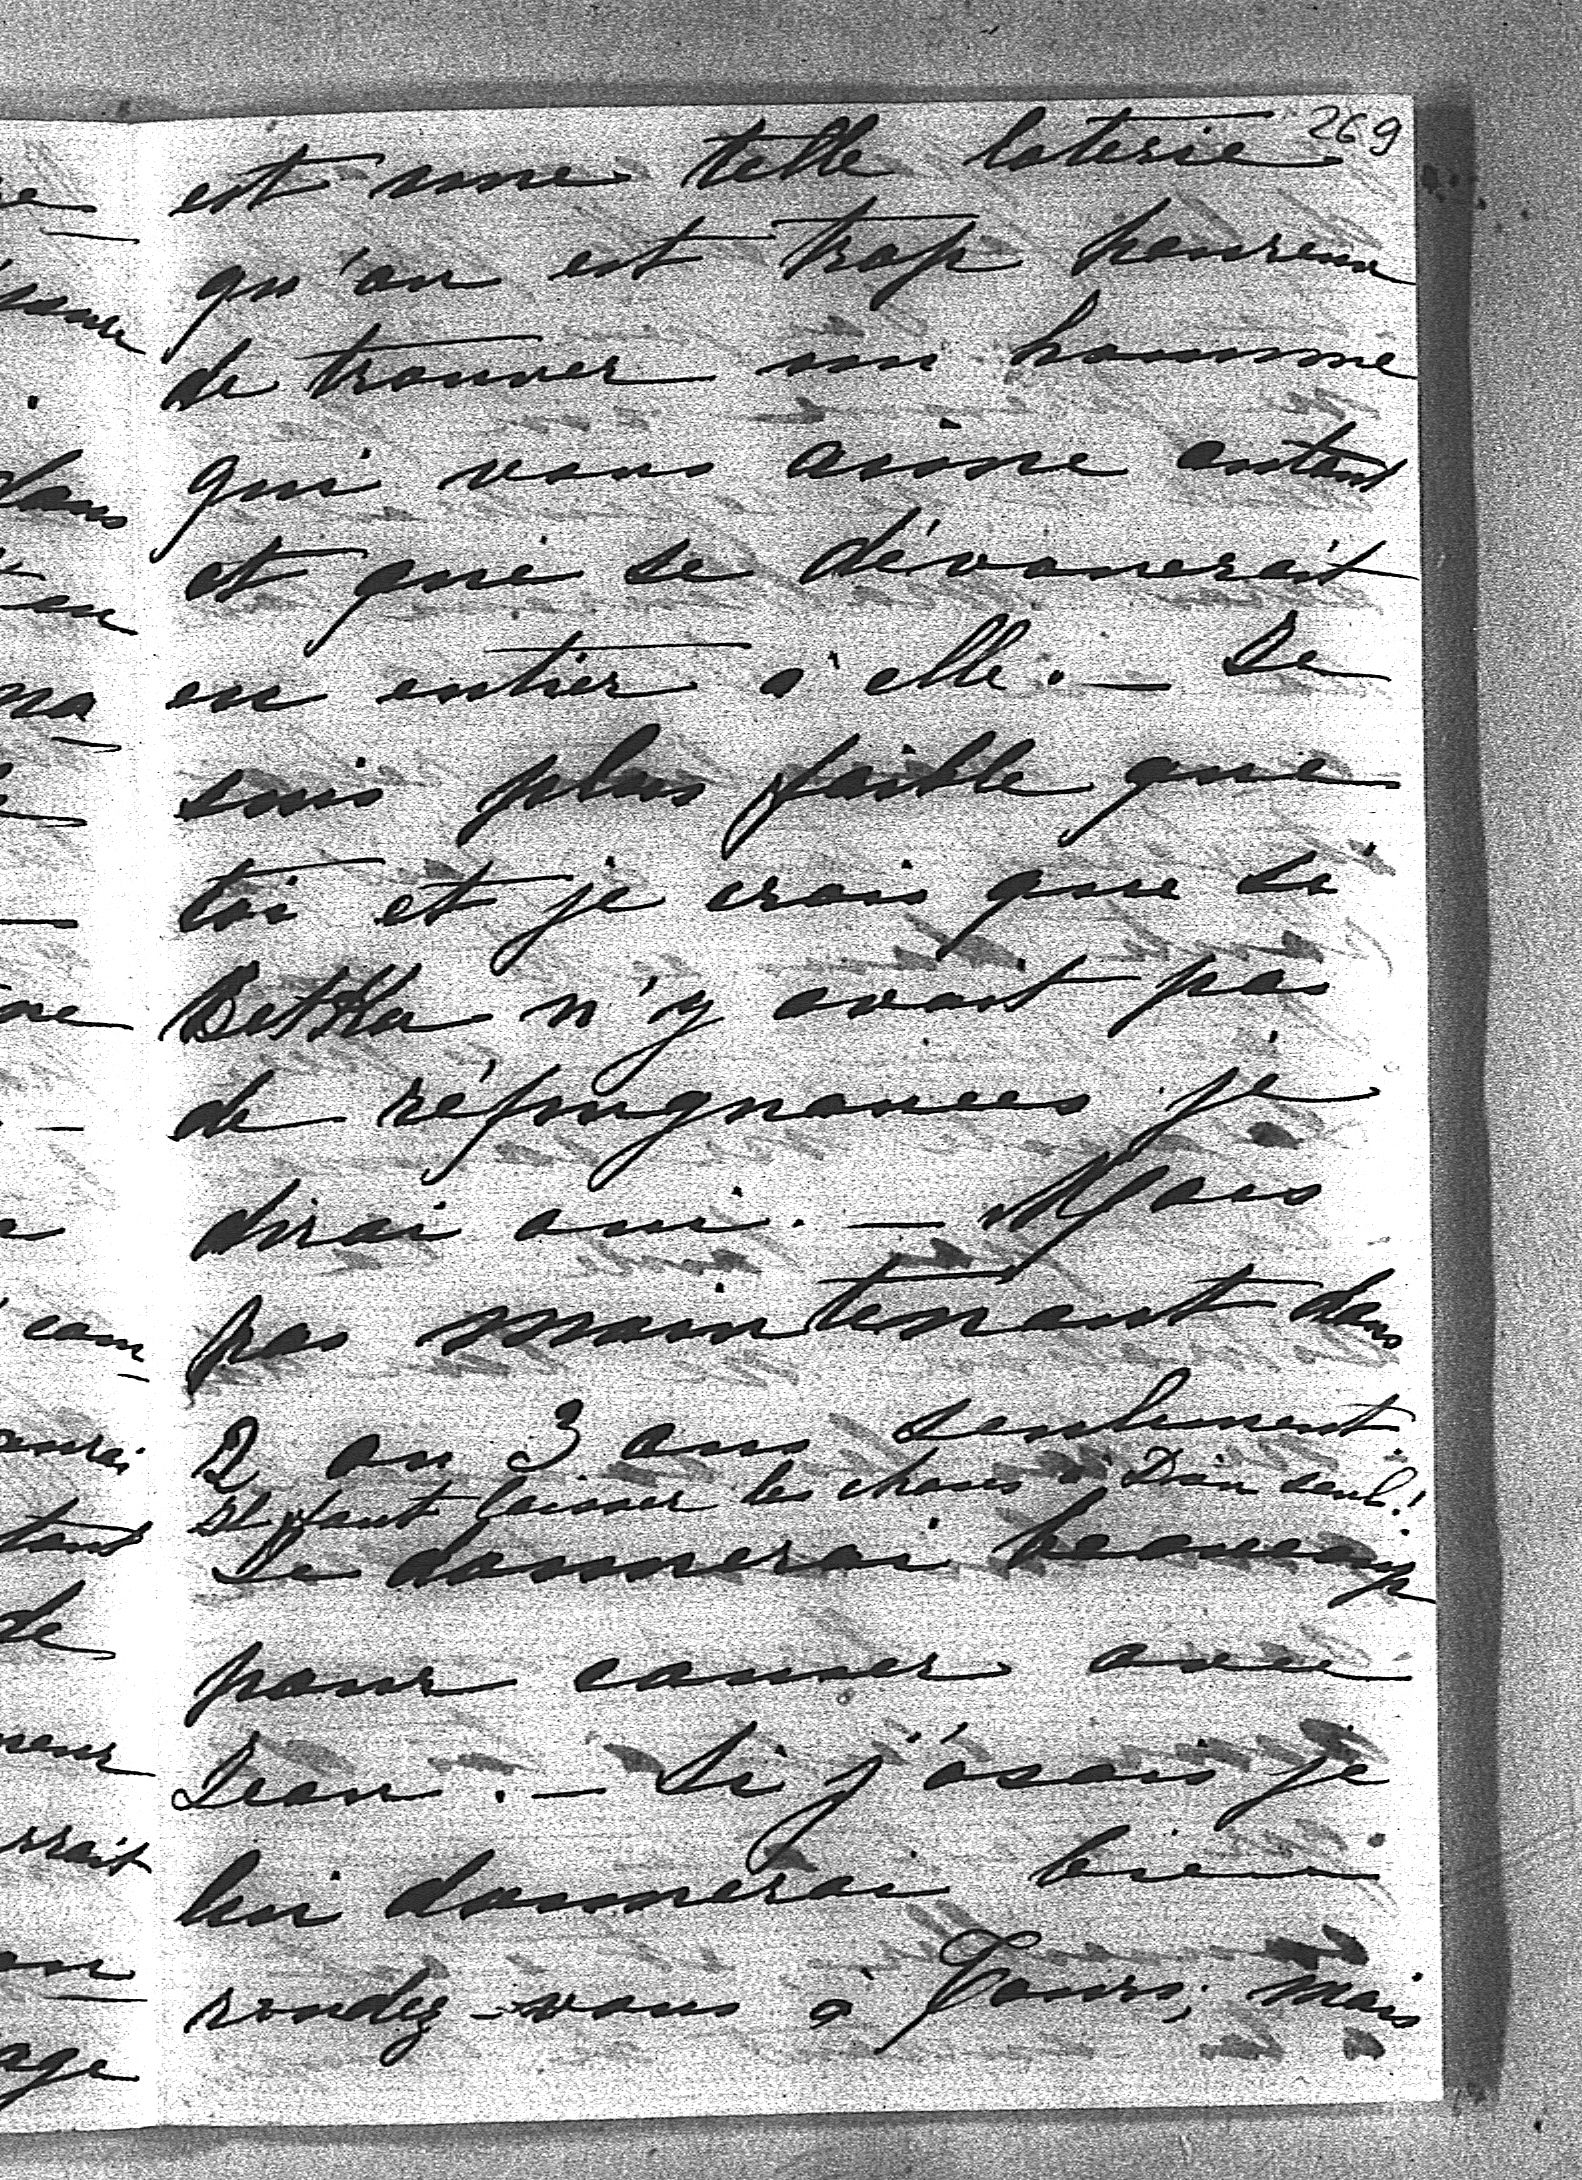 269
est une telle loterie
qu'on est trop heureux
de trouver un homme
qui vous aime autant
et qui se dévouerait
en entier à elle. — Je
suis plus faible que
toi et je crois que si
Betka n'y avait pas
de répugnances je
dirai oui. — Mais
pas maintenant dans
2 ou 3 ans seulement.
Il faut laisser les choses à Dieu seul!
Je donnerai beaucoup
pour causer avec
Jean. — Si j'osais je
lui donnerai bien
rendez-vous à Tours, mais